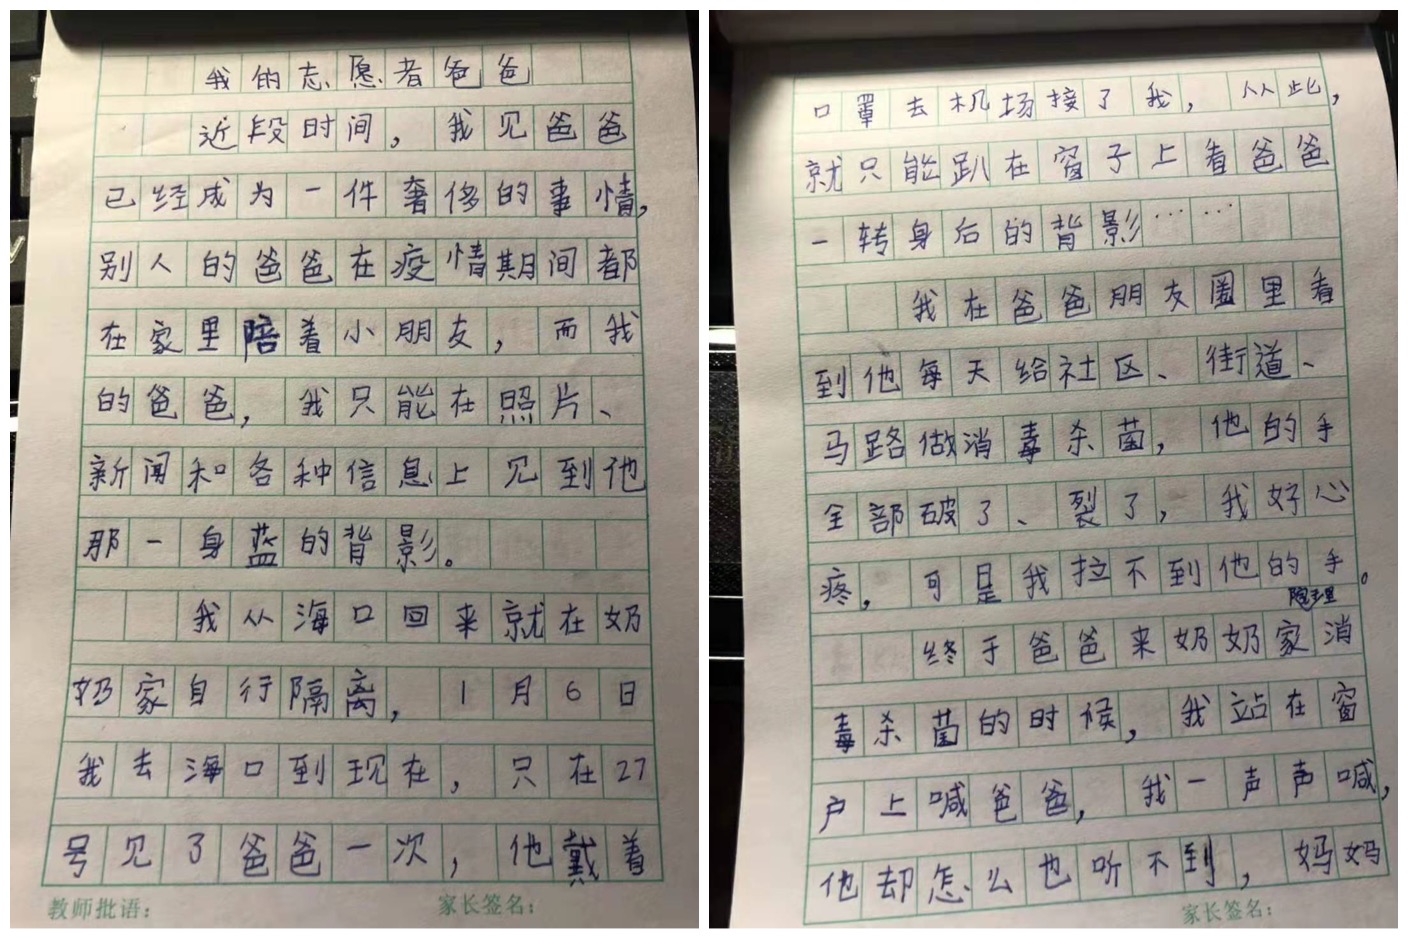 我的志愿者爸爸
近段时间，我见爸爸
已经成为一件奢侈的事情，
别人的爸爸在疫情期间都
在家里陪着小朋友，而我
的爸爸，我只能在照片、
新闻和各种信息上见到他
那一身蓝的背影。
我从海口回来就在奶
奶家自行隔离，1月6日
我去海口到现在，只在27
号见了爸爸一次，他戴着
教师批语：
家长签名：
口罩去机场接了我，从此，
就只能趴在窗子上看爸爸
一转身后的背影……
我在爸爸朋友圈里看
到他每天给社区、街道、
马路做消毒杀菌，他的手
全部破了、裂了，我好心
疼，可是我拉不到他的手。
终于爸爸来奶奶家消
毒杀菌的时候，我站在窗
户上喊爸爸，我一声声喊，
他却怎么也听不到，妈妈
家长签名：